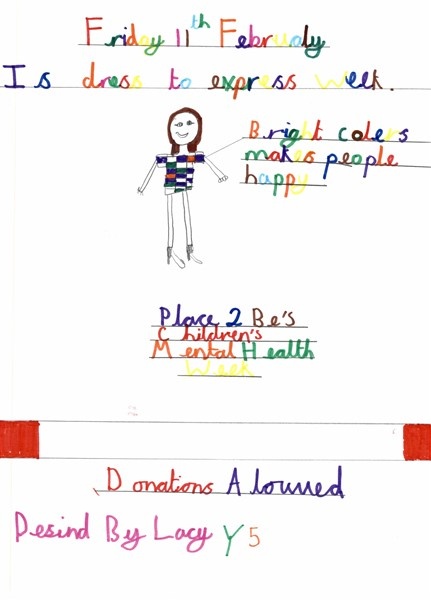 Friday 11th Februaly
Is dress to express week.
Bright colers
makes people
happy
Place 2 Be's
Children's
Mental Health
Week
Donations Alouwed
Desind By Lacy Y5